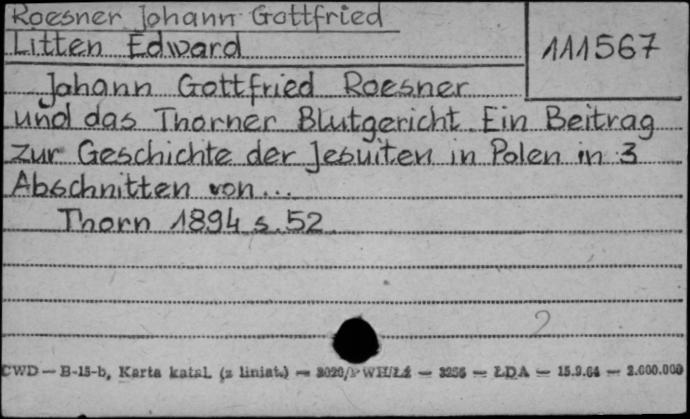 Roesner Johann Gottfried
Litten Edward
111567
Johann Gottfried Roesner
und das Thorner Blutgericht. Ein Beitrag
zur Geschichte der Jesuiten in Polen in 3
Abschnitten von...
Thorn 1894 s. 52
2
CWD — B-15-b, Karta katal. (z liniat.) — 3020/PWH/Łź — 3256 — ŁDA — 15.9.64 — 2.000.000